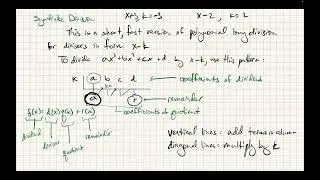 Synthetic Division x+3, k=-3 x-2, k=2
This is a short, fast version of polynomial long division
for divisors in form x-k
To divide ax³+bx²+cx+d by x-k, use this pattern:
k a b c d coefficients of dividend
ka
a r remainder
coefficients of quotient
f(x)=d(x)q(x)+r(x)
dividend
divisor
quotient
remainder
vertical lines: add terms in column
diagonal lines: multiply by k